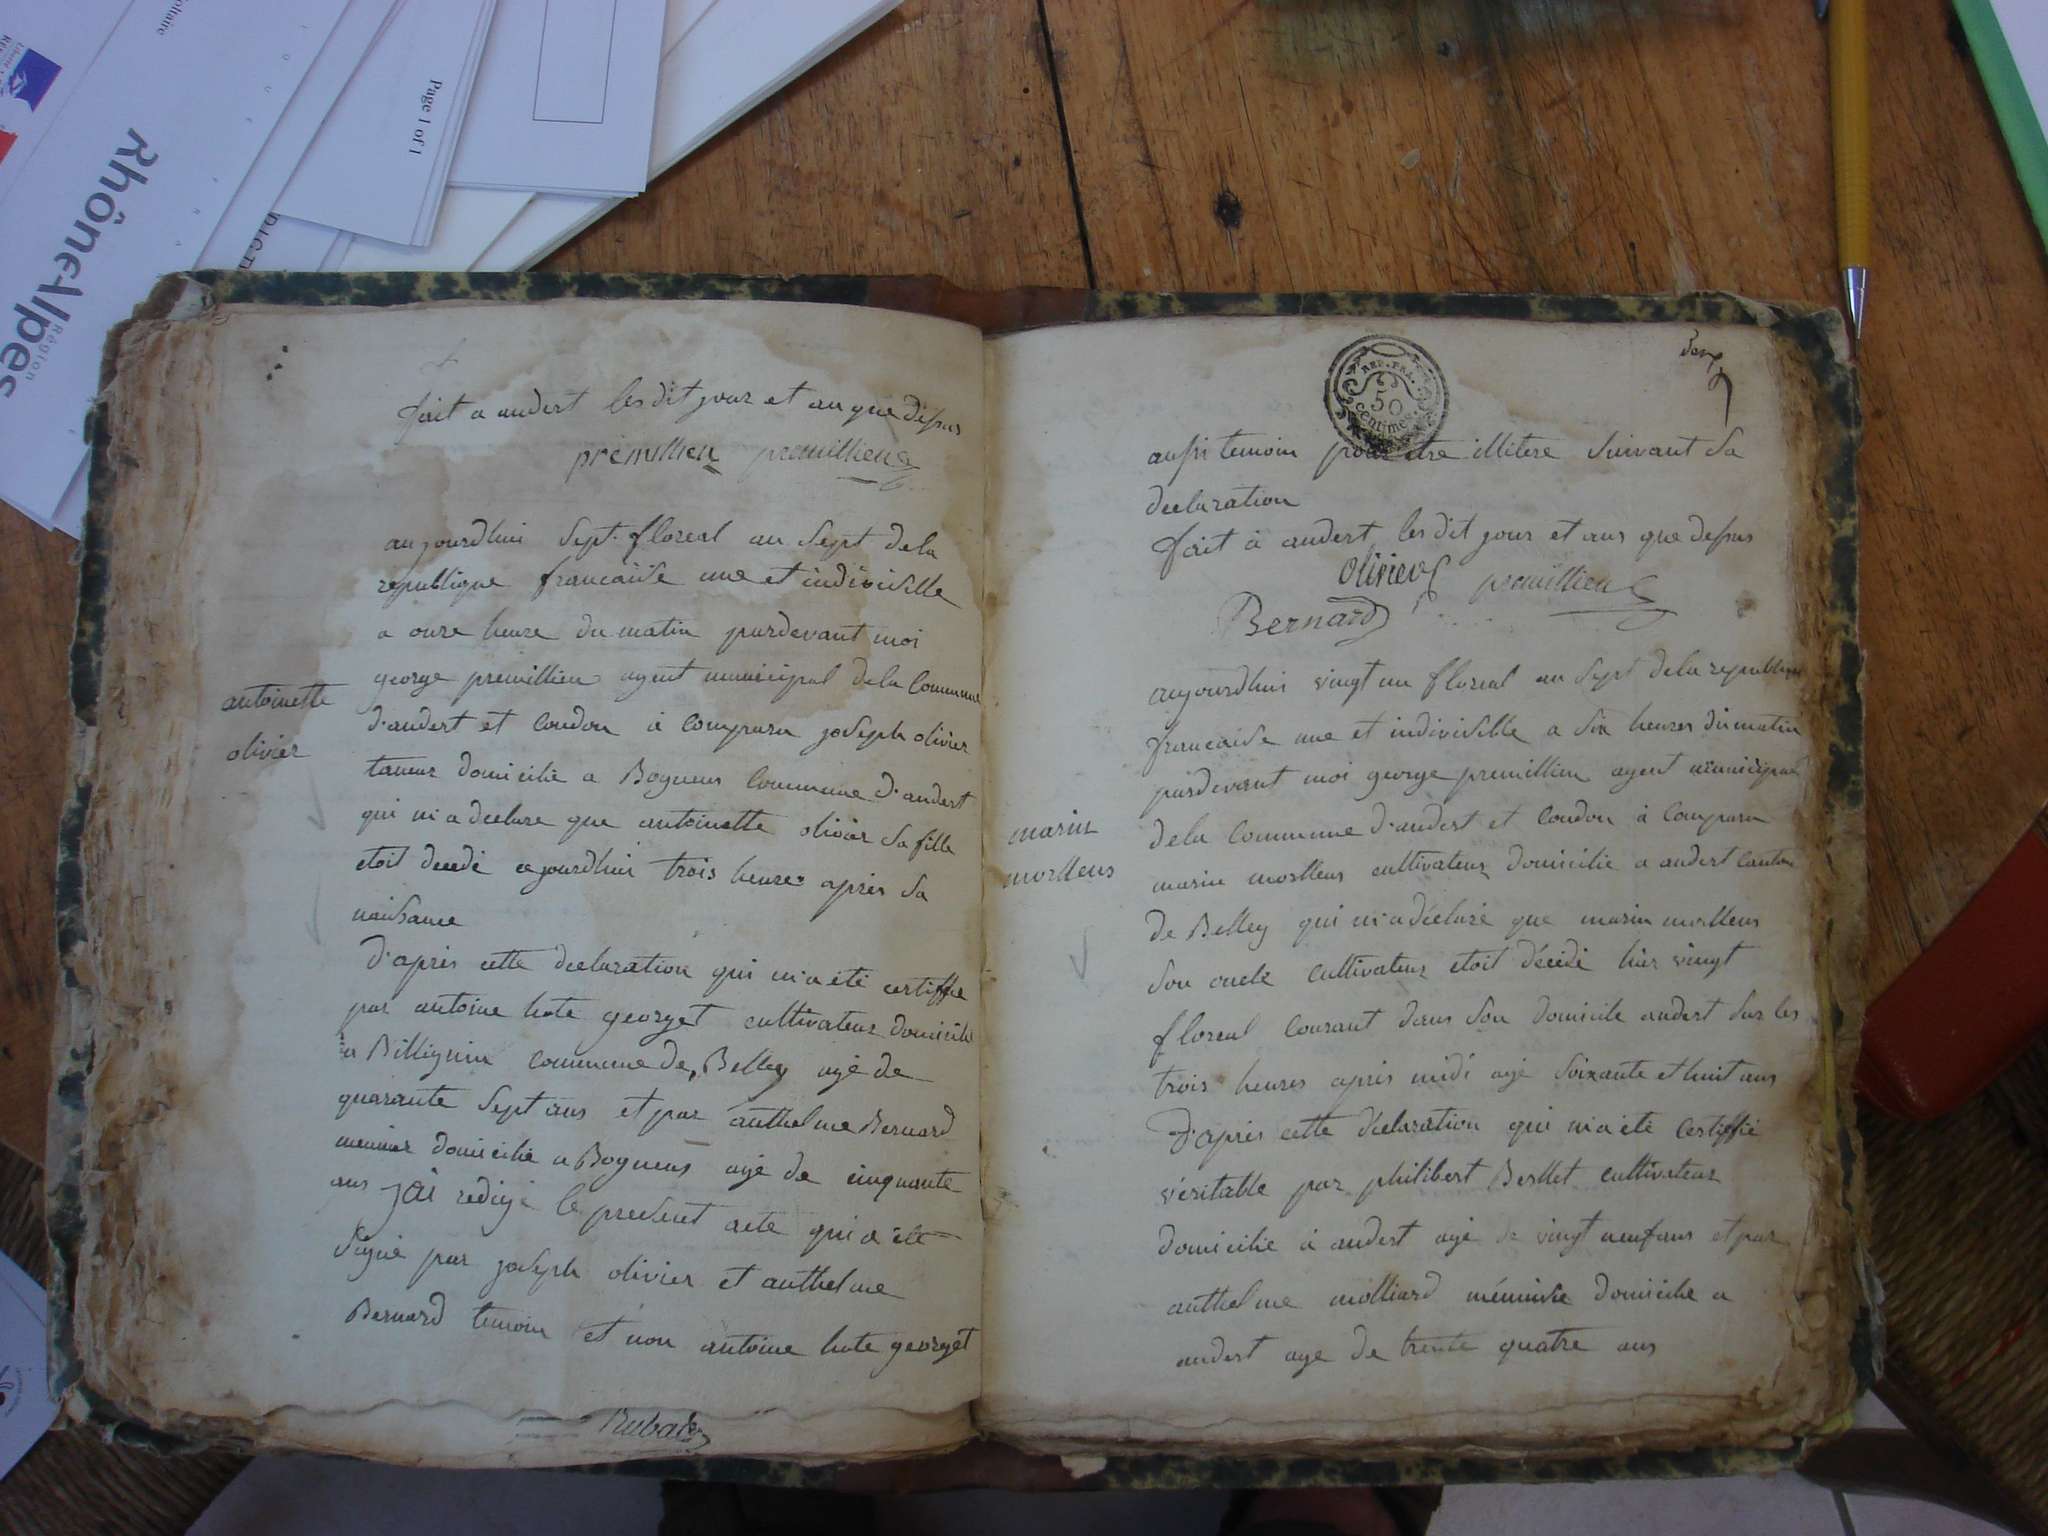 Rhône-Alpes
Région
Page 1 of 1
fait a andert les dit jour et an que dessus
premillieu premillieu
antoinette
olivier
aujourdhui sept floreal an sept dela
republique francaisse une et indivisible
a onze heure du matin pardevant moi
george premillieu agent municipal dela commune
d'andert et condon à comparu joseph olivier
taneur domicilié a Bognens commune d'andert
qui m'a declare que antoinette olivier sa fille
etoit decedé cejourdhui trois heures apres sa
naissance
D'après cette declaration qui m'a été certiffie
par antoine hote georget cultivateur domicilié
a Billignin commune de Belley agé de
quarante sept ans et par anthelme Bernard
meunier domicilié a Bognens agé de cinquante
ans j'ai redigé le present acte qui a été
signé par joseph olivier et anthelme
Bernard temoin et non antoine hote georget
Rubat
REP. FRA.
50
centimes
aussi temoin pour etre illitere suivant sa
declaration
fait à andert les dit jour et ans que dessus
olivier premillieu
Bernard
marin
morttens
aujourdhui vingt un floreal an sept dela republique
francaise une et indivisible a six heures du matin
pardevant moi george premillieu agent municipal
dela commune d'andert et condon à comparu
marin morttens cultivateur domicilié a andert canton
de Belley qui m'a déclaré que marin morttens
son oncle cultivateur etoit décédé hier vingt
floreal courant dans son domicile andert sur les
trois heures après midi agé soixante et huit ans
D'après cette déclaration qui m'a été certiffié
véritable par philibert Berthet cultivateur
domicilié à andert agé de vingt neuf ans et par
anthelme molliard ménuisie domicilié a
andert age de trente quatre ans